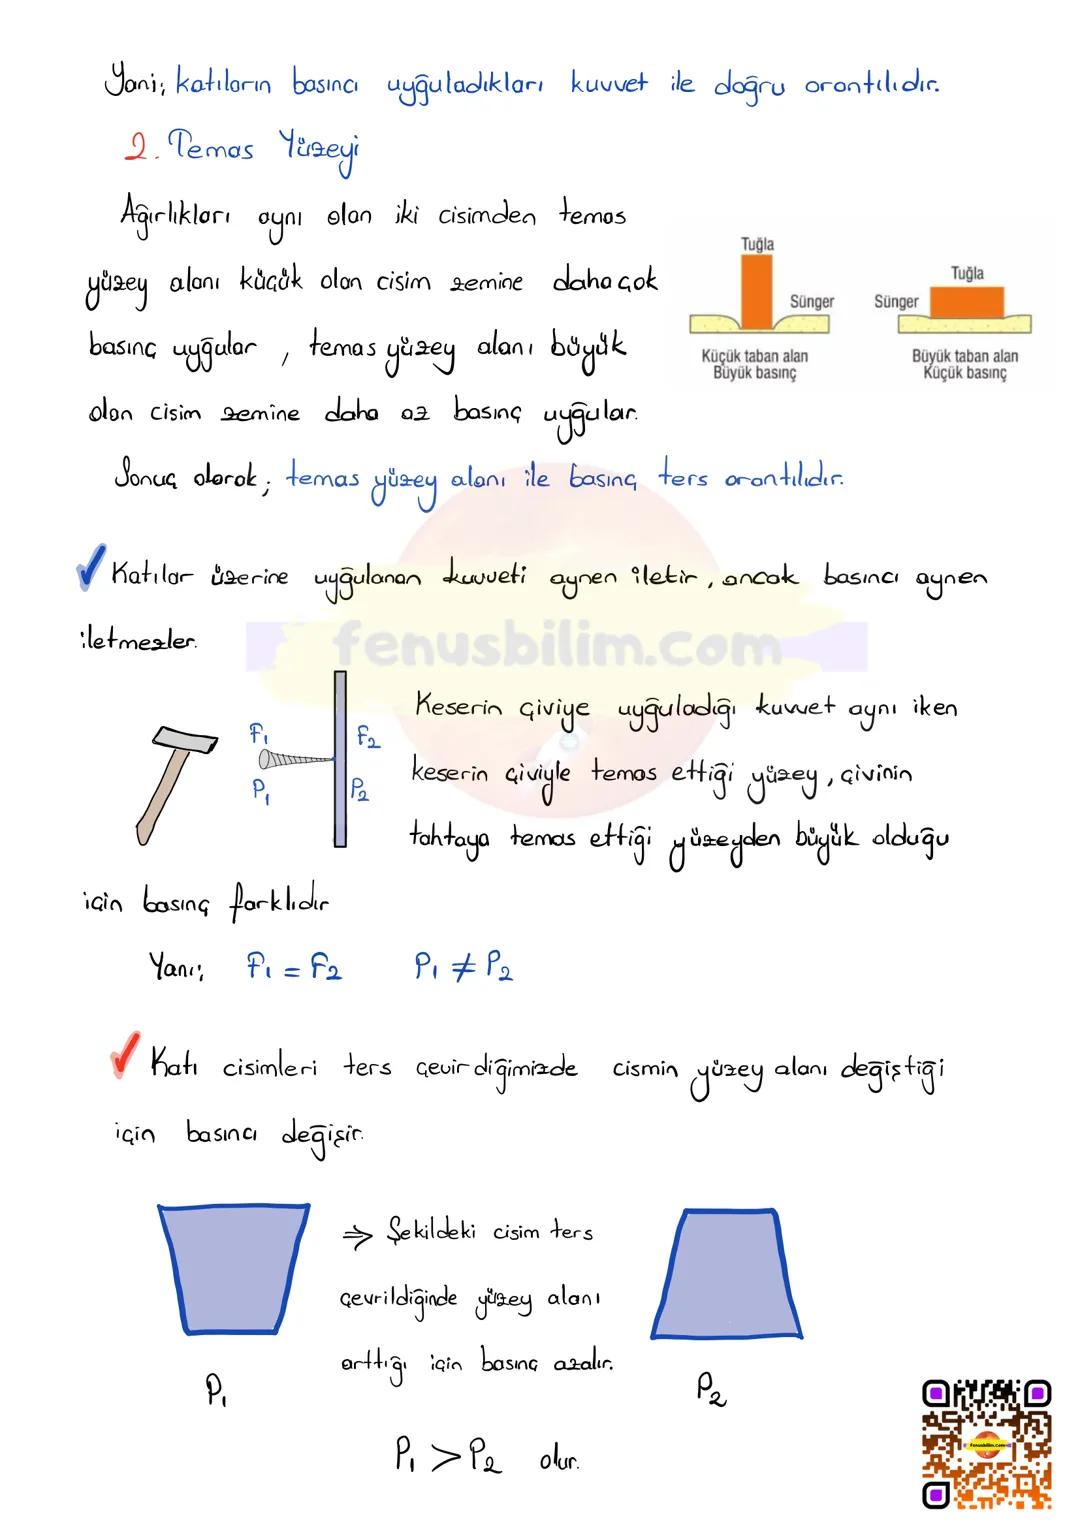 Yani; katıların basıncı uyguladıkları kuvvet ile doğru orantılıdır.
2. Temas Yüzeyi
Ağırlıkları aynı olan iki cisimden temas
yüzey alanı küçük olan cisim zemine daha çok
basınç uygular , temas yüzey alanı büyük
olan cisim zemine daha az basınç uygular.
Tuğla
Sünger
Küçük taban alan
Büyük basınç
Tuğla
Sünger
Büyük taban alan
Küçük basınç
Sonuç olarak; temas yüzey alanı ile basınç ters orantılıdır.
Katılar üzerine uygulanan kuvveti aynen iletir, ancak basıncı aynen
iletmezler.
fenusbilim.com
F₁
P₁
F₂
P₂
Keserin çiviye uyguladığı kuvvet aynı iken
keserin çiviyle temas ettiği yüzey, çivinin
tahtaya temas ettiği yüzeyden büyük olduğu
için basınç farklıdır
Yani; F₁ = F₂ P₁ ≠ P₂
Katı cisimleri ters çevirdiğimizde cismin yüzey alanı değiştiği
için basıncı değişir.
⇒ Şekildeki cisim ters
çevrildiğinde yüzey alanı
arttığı için basınç azalır.
P₁
P₂
P₁ > P₂ olur.
fenusbilim.com